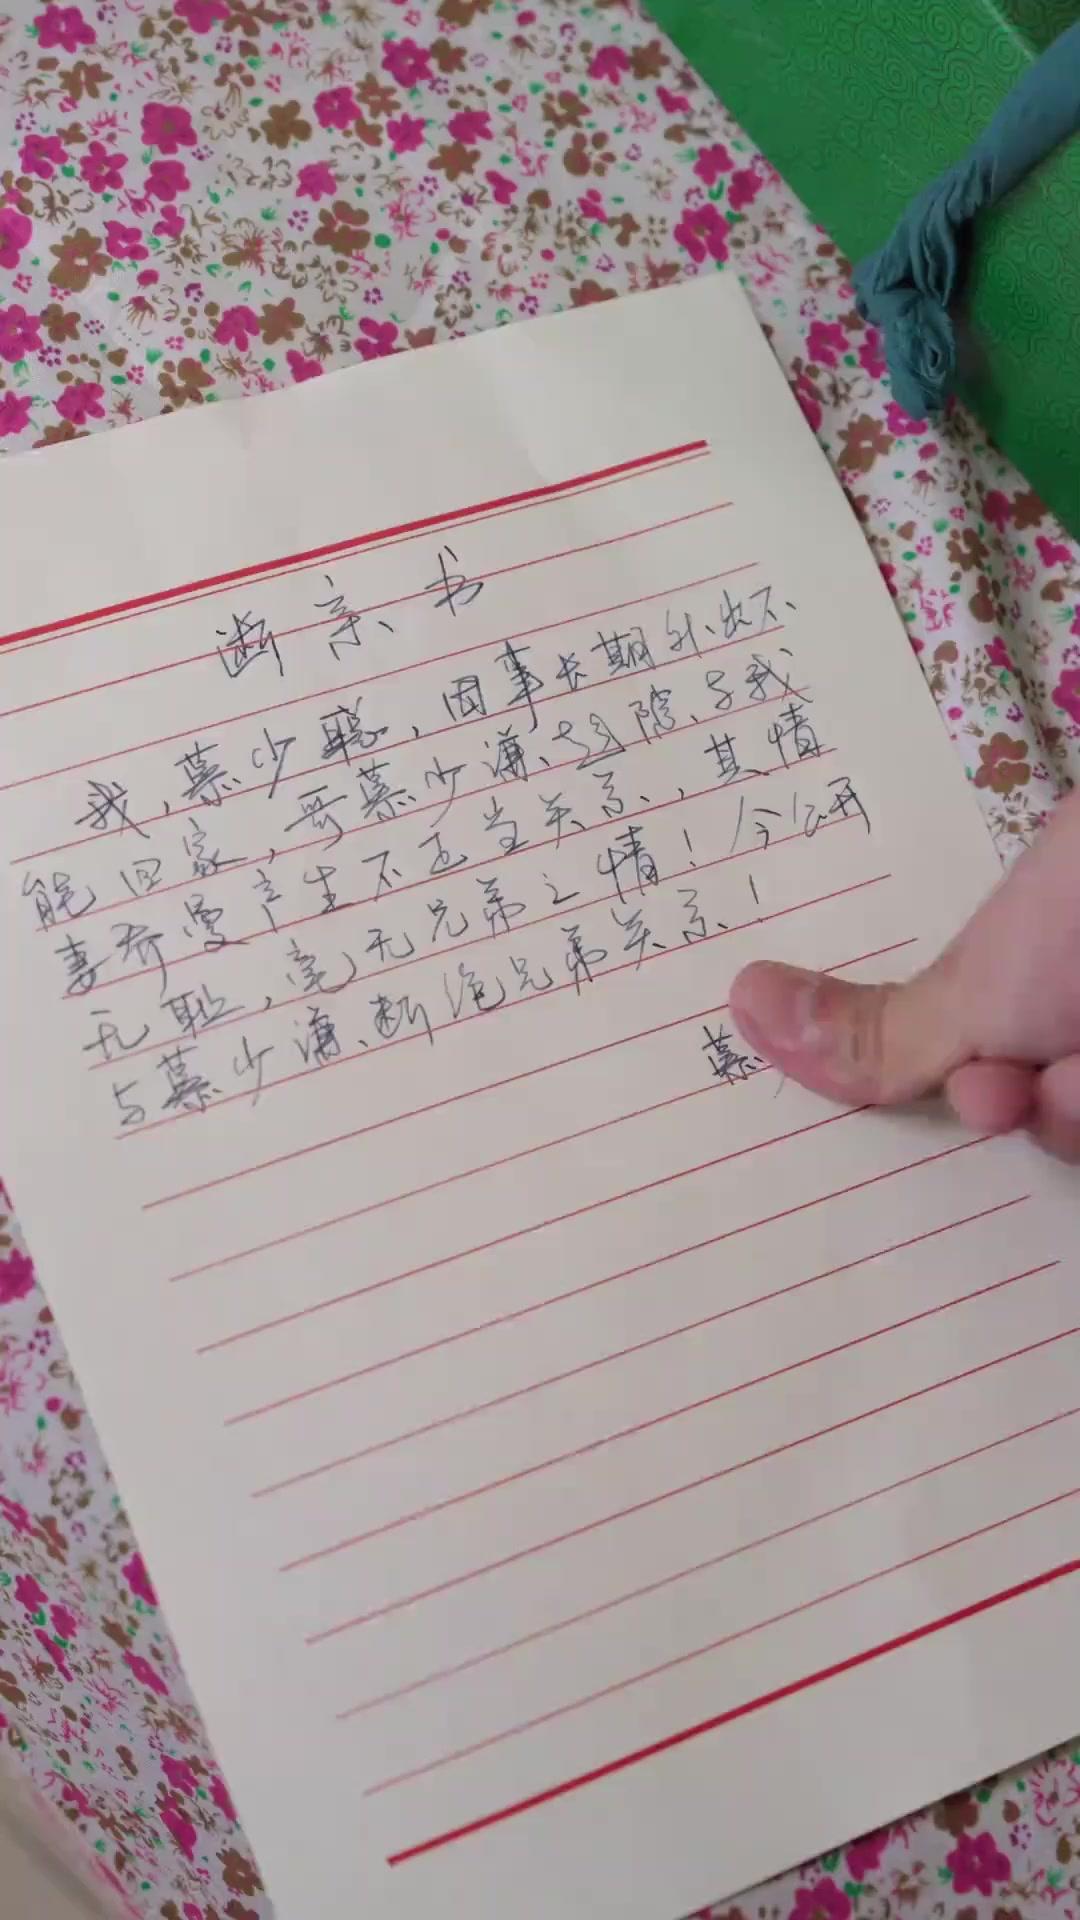 断亲书
我，慕少聪，因事长期外出不
能回家，哥慕少谦趁隙与我
妻乔曼产生不正当关系，其情
无耻，毫无兄弟之情！今公开
与慕少谦断绝兄弟关系！
慕